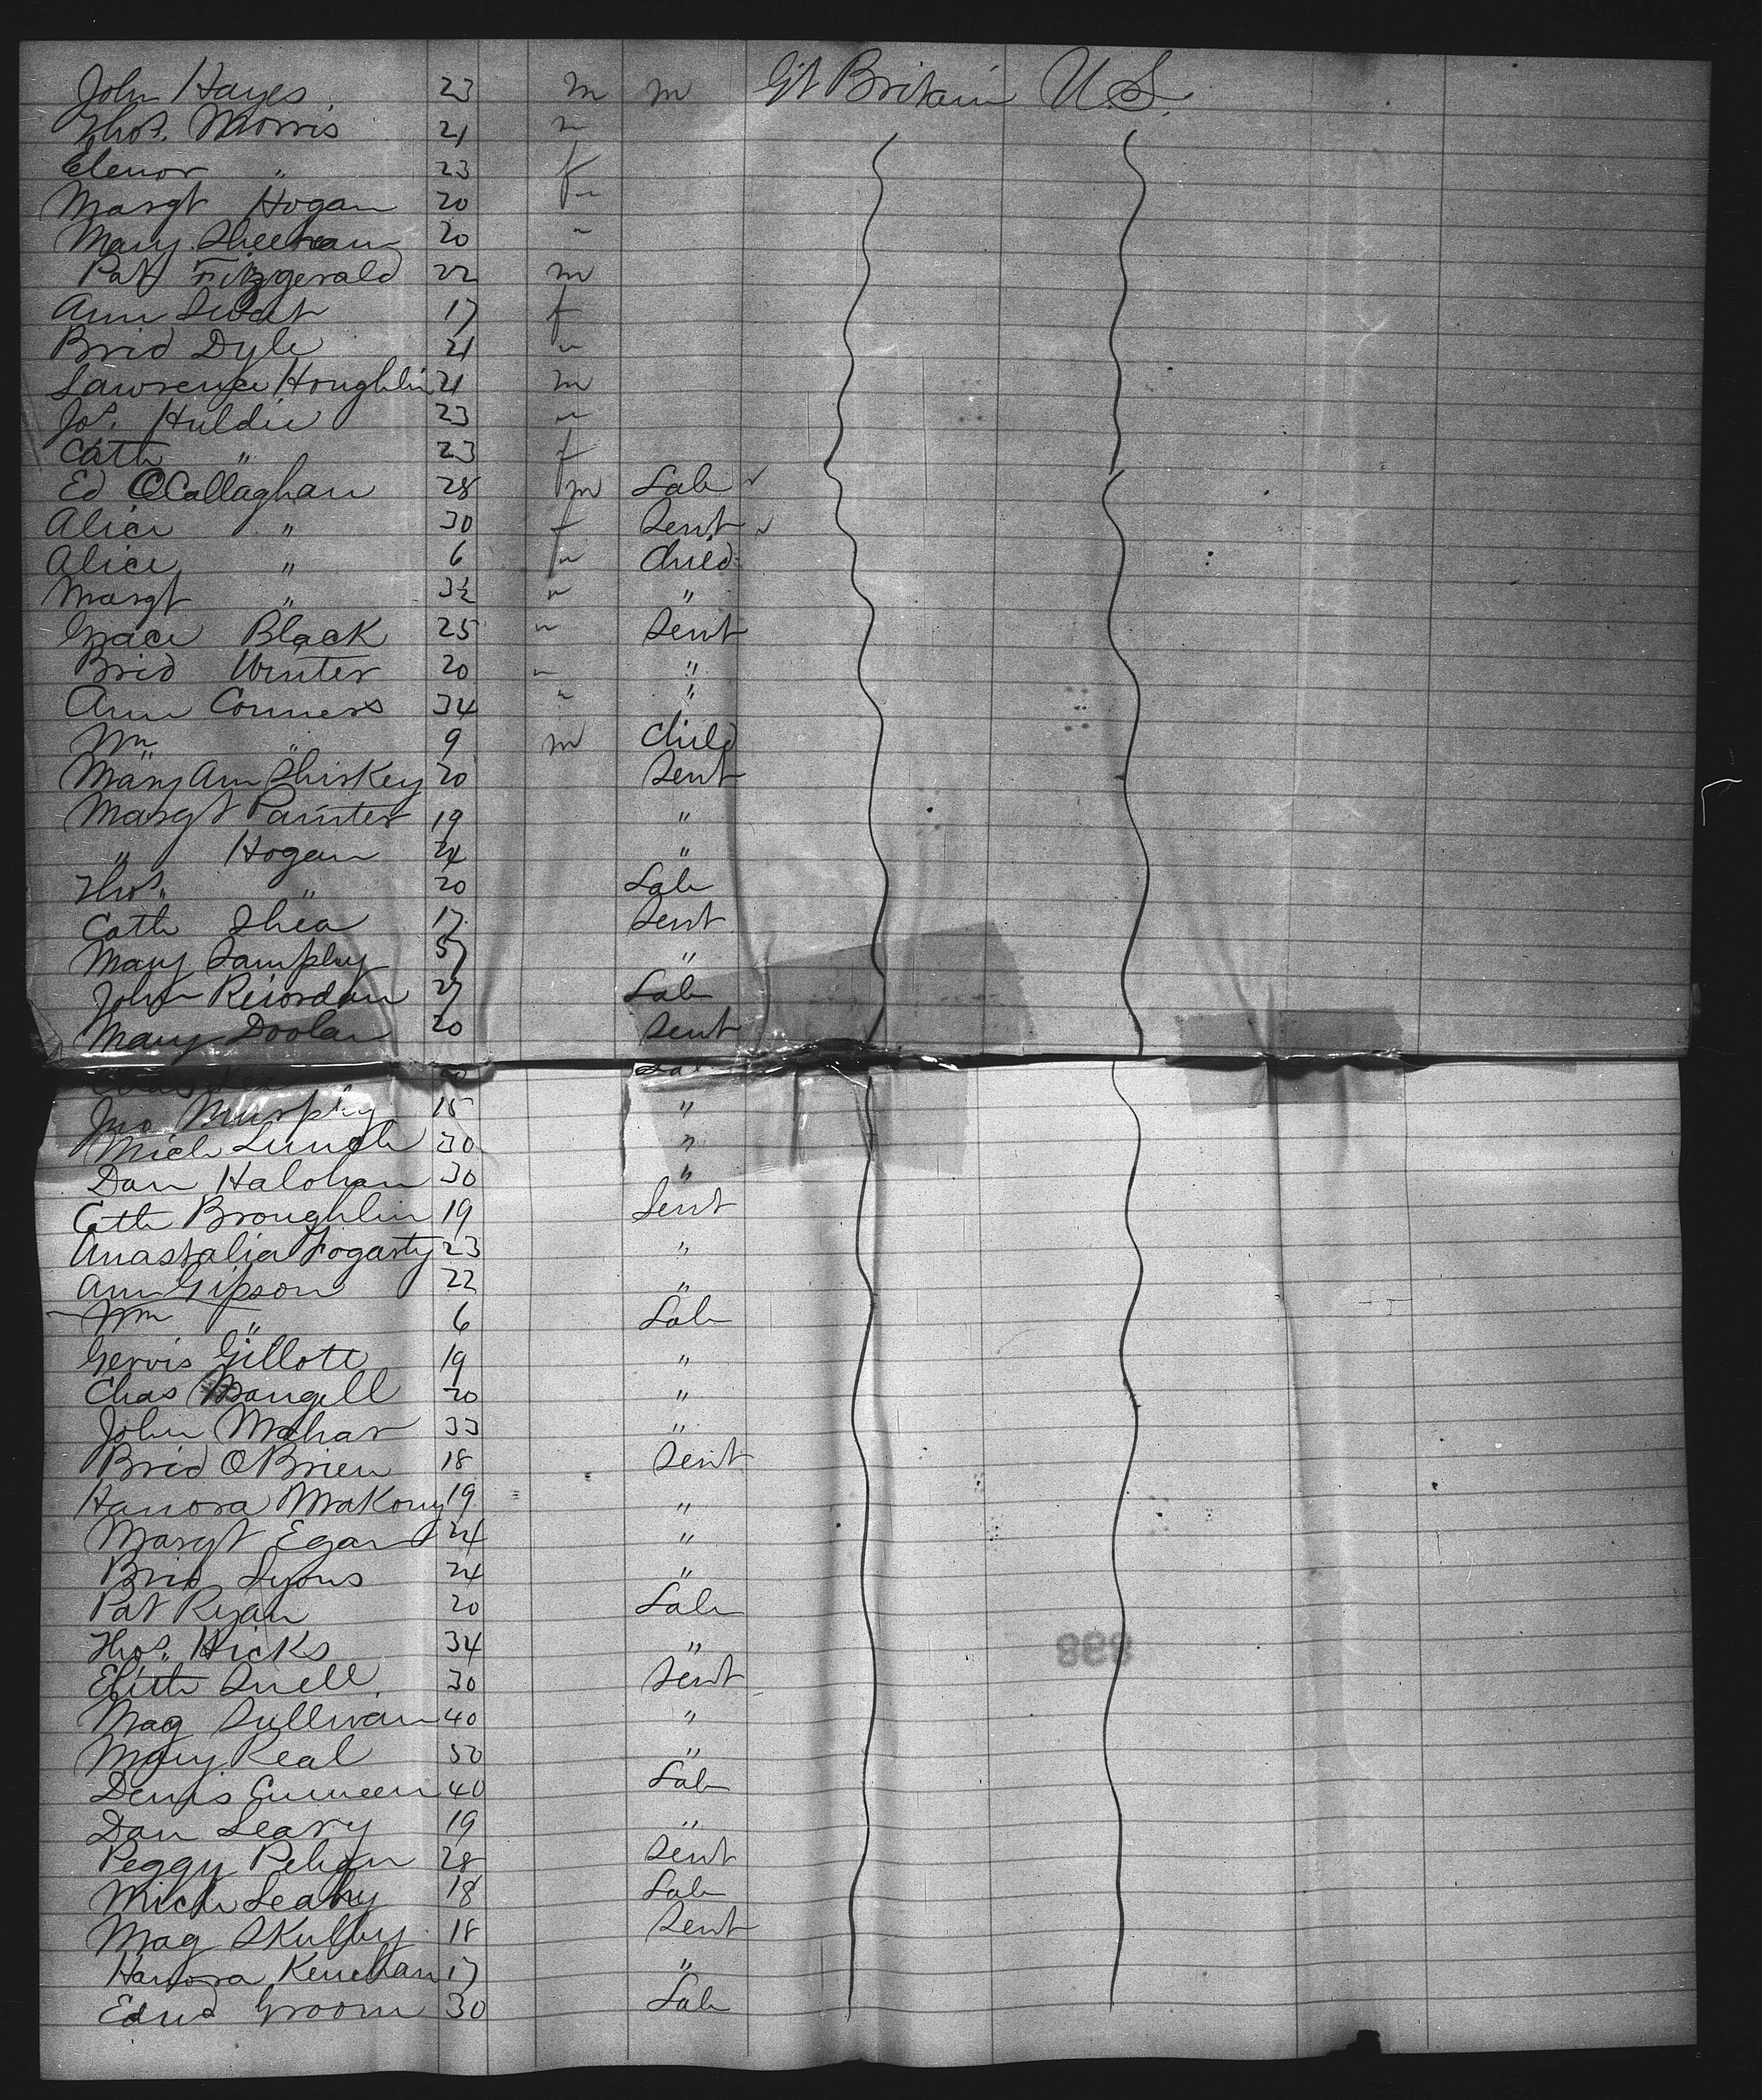 John Hayes 23 m m Gt Britain U.S.
Thos. Morris 21 "
Elenor " 23 f
Margt Hogan 20 "
Mary Sheehan 20 "
Pat Fitzgerald 22 m
Ann Sweet 17 f
Brid Dyle 21 "
Lawrence Houghlin 21 m
Jos. Huldie 23 "
Cath " 23 f
Ed OCallaghan 28 m Lab
Alice " 30 f Servt
Alice " 6 " Child
Margt " 3½ " "
Grace Black 25 " Servt
Brid Winter 20 " "
Ann Conners 34 " "
Wm " 9 m Child
Mary Ann Shirkey 20 Servt
Margt Painter 19 "
" Hogan 24 "
Thos. " 20 Lab
Cath Shea 17 Servt
Mary Samphy 57 "
John Reiordan 27 Lab
Mary Doolan 20 Servt
Lab
Jno Murphy 15 "
Mich Lynch 30 "
Dan Halohan 30 "
Cath Broughlin 19 Servt
Anastalia Fogarty 23 "
Ann Gipson 22 "
Wm " 6 Lab
Gervis Gillott 19 "
Chas Mangell 20 "
John Mahar 33 "
Brid OBrien 18 Servt
Hanora Makony 19 "
Margt Egan 24 "
Brid Lyons 24 "
Pat Ryan 20 Lab
Thos. Hicks 34 "
Elith Snell 30 Servt
Mag Sullivan 40 "
Mary Real 50 "
Denis Cumeen 40 Lab
Dan Leary 19 "
Peggy Pelhan 28 Servt
Mich Leahy 18 Lab
Mag Skulby 18 Servt
Hanora Kenehan 17 "
Edwd Groom 30 Lab